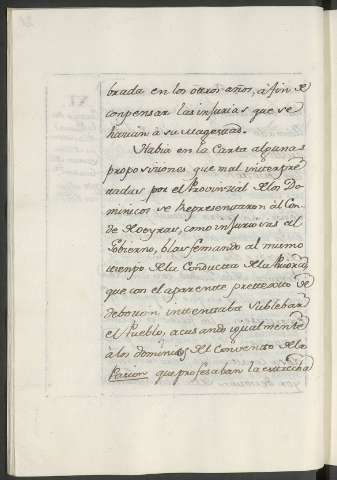 brada en los otros años, à fin de
conpensar las injurias que se
hacian à su Magestad.
Habia en la Carta algunas
proposiciones que mal interpre
tadas por el Provincial de los Do
minicos se Representaron al Con
de de Oeyras, como injuriosas al
Gobierno, blasfemando al mismo
tiempo de la Conducta de la
que con el aparente pretexto de
devocion intentaba sublebar
el Pueblo, acusando igualmente
à los dominicos del Convento de la
que profesaban la estrecha